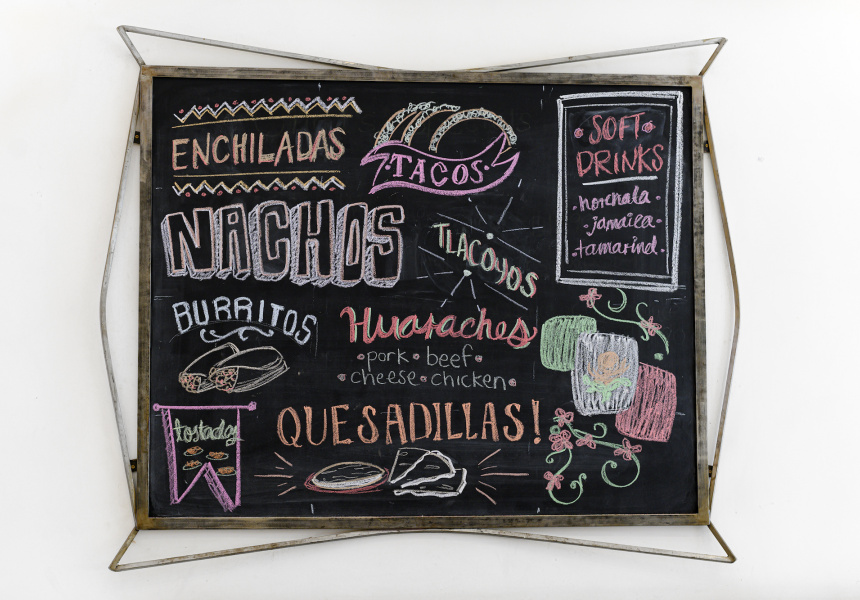 ENCHILADAS
TACOS
SOFT
DRINKS
horchata
jamaica
tamarind
NACHOS
TLACOYOS
BURRITOS
Huaraches
pork • beef
cheese • chicken
tostadas
QUESADILLAS!